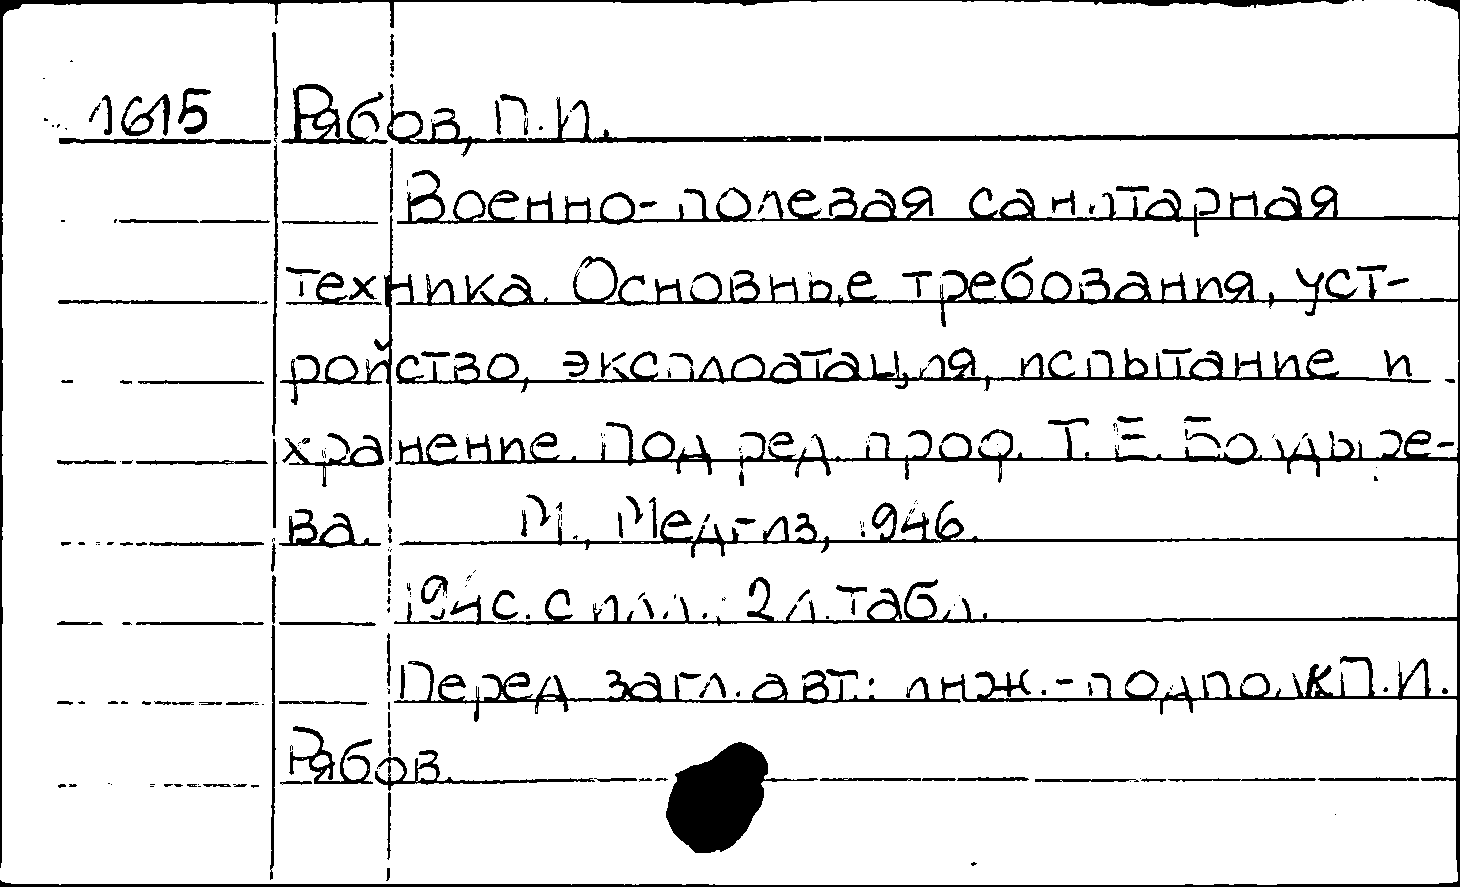 1615 Рябов, П.И.
Военно-полевая санитарная
техника. Основные требования, уст-
ройство, эксплоатация, испытание и
хранение. Под ред. проф. Т.Е. Болдыре-
ва. М., Медгиз, 1946.
194с. с илл.; 2 л. табл.
Перед загл. авт.: инж.-подполк П.И.
Рябов.